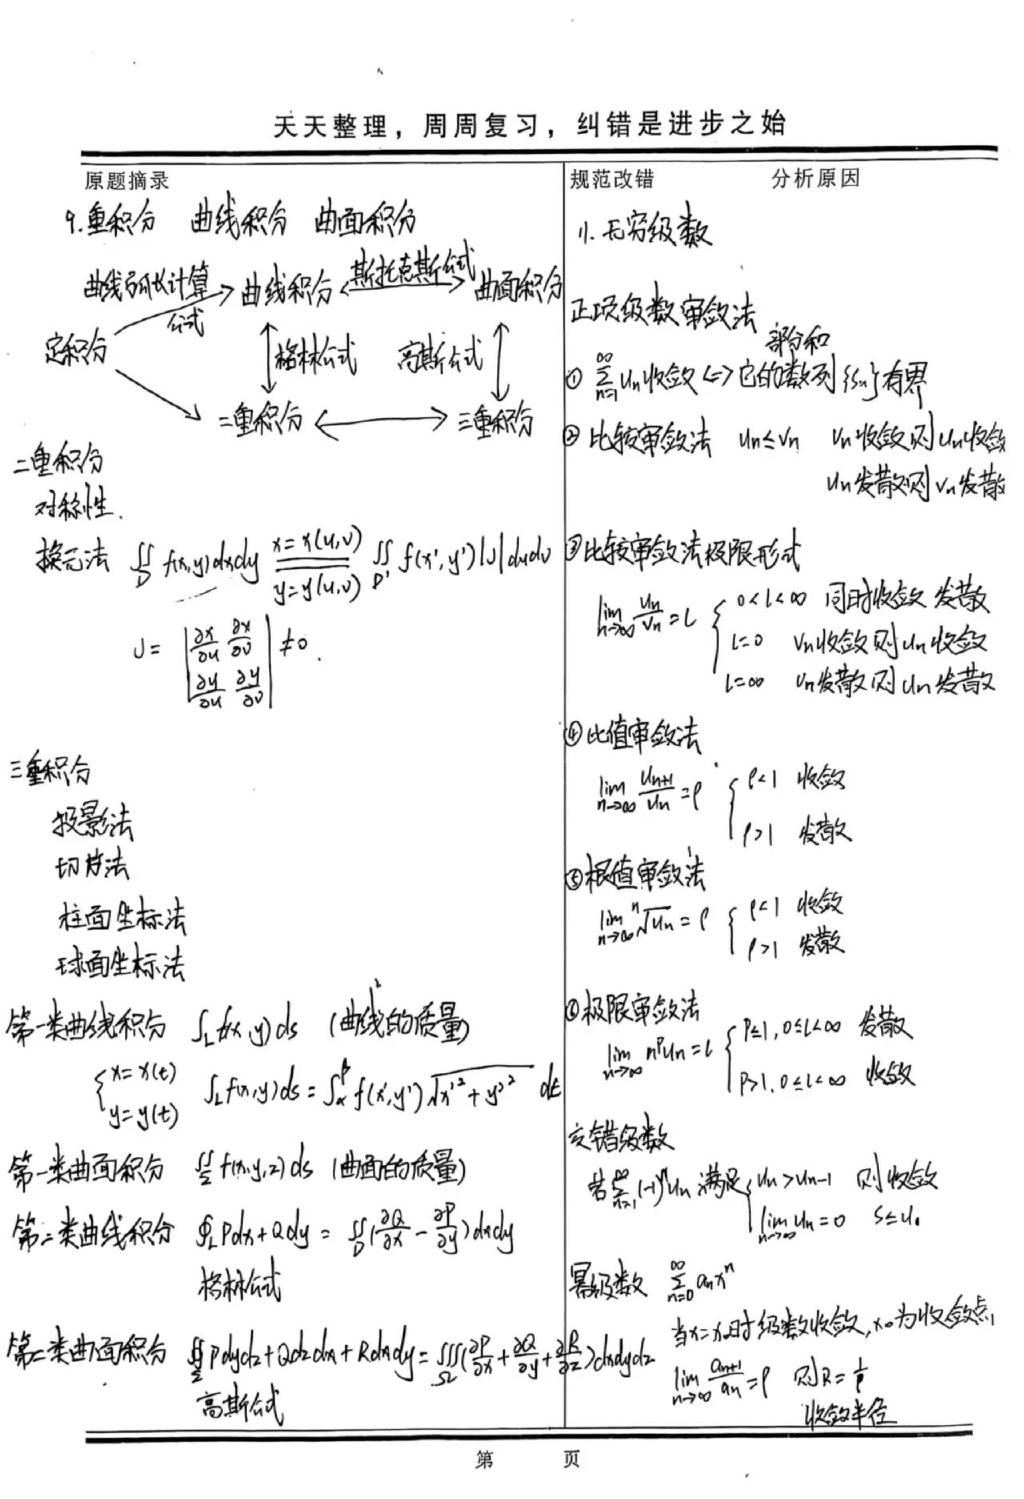 天天整理，周周复习，纠错是进步之始
原题摘录
9.重积分 曲线积分 曲面积分
曲线弧长计算 公式
曲线积分 斯托克斯公式 曲面积分
定积分 格林公式 高斯公式
二重积分 三重积分
二重积分
对称性.
换元法 ∬_D f(x,y)dxdy =(x=x(u,v), y=y(u,v))= ∬_D' f(x',y')|J|dudv
J= |∂x/∂u ∂x/∂v; ∂y/∂u ∂y/∂v| ≠0.
三重积分
投影法
切片法
柱面坐标法
球面坐标法
第一类曲线积分 ∫_L f(x,y)ds (曲线的质量)
{x=x(t) y=y(t) ∫_L f(x,y)ds=∫_α^β f(x',y')√(x'²+y'²) dt
第一类曲面积分 ∬_Σ f(x,y,z)ds (曲面的质量)
第二类曲线积分 ∮_L Pdx+Qdy = ∬_D(∂Q/∂x-∂P/∂y)dxdy
格林公式
第二类曲面积分 ∯_Σ Pdydz+Qdzdx+Rdxdy=∭_Ω(∂P/∂x+∂Q/∂y+∂R/∂z)dxdydz
高斯公式
规范改错 分析原因
11.无穷级数
正项级数审敛法
部分和
① ∑_{n=1}^∞ un收敛⇔它的数列{Sn}有界
② 比较审敛法 un≤vn vn收敛则un收敛
un发散则vn发散
③比较审敛法极限形式
lim_{n→∞} un/vn=l { 0<l<∞ 同时收敛 发散
l=0 vn收敛则un收敛
l=∞ vn发散则un发散
④比值审敛法
lim_{n→∞} un+1/un=ρ { ρ<1 收敛
ρ>1 发散
⑤根值审敛法
lim_{n→∞} ⁿ√un=ρ { ρ<1 收敛
ρ>1 发散
⑥极限审敛法
lim_{n→∞} n^p un=l { p≤1,0≤l<∞ 发散
p>1,0≤l<∞ 收敛
交错级数
若∑_{n=1}^∞(-1)^n un 满足{ un>un-1 则收敛
lim_{n→∞} un=0 S≤u1
幂级数 ∑_{n=0}^∞ anx^n
当x=x0时级数收敛,x0为收敛点
lim_{n→∞} an+1/an=ρ 则R=1/ρ
收敛半径
第 页